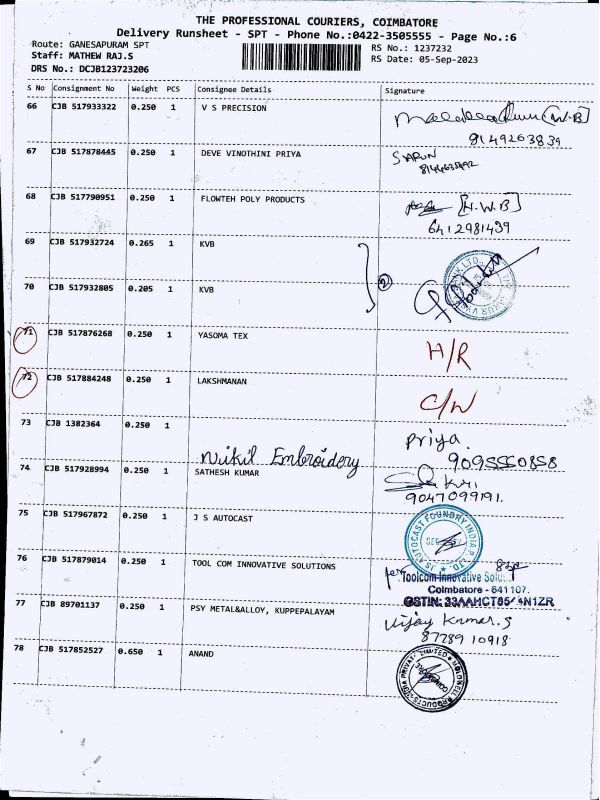 THE PROFESSIONAL COURIERS, COIMBATORE
Delivery Runsheet - SPT - Phone No.:0422-3505555 - Page No.:6
Route: GANESAPURAM SPT
RS No.: 1237232
Staff: MATHEW RAJ.S
RS Date: 05-Sep-2023
DRS No.: DCJB123723206
S No Consignment No Weight PCS Consignee Details Signature
66 CJB 517933322 0.250 1 V S PRECISION
[W.B]
8149263839
67 CJB 517878445 0.250 1 DEVE VINOTHINI PRIYA
68 CJB 517790951 0.250 1 FLOWTEH POLY PRODUCTS [H.W.B]
6412981439
69 CJB 517932724 0.265 1 KVB
2
70 CJB 517932805 0.205 1 KVB
71 CJB 517876268 0.250 1 YASOMA TEX H/R
72 CJB 517884248 0.250 1 LAKSHMANAN C/W
73 CJB 1382364 0.250 1 Priya
Nikil Embroidery 9095550858
74 CJB 517928994 0.250 1 SATHESH KUMAR
9047099191.
75 CJB 517967872 0.250 1 J S AUTOCAST
JS AUTOCAST FOUNDRY INDIA P. LTD.
76 CJB 517879014 0.250 1 TOOL COM INNOVATIVE SOLUTIONS
Toolcom Innovative
Coimbatore - 641107.
77 CJB 89701137 0.250 1 PSY METAL&ALLOY, KUPPEPALAYAM Vijay Kumar.S
8778910918
78 CJB 517852527 0.650 1 ANAND